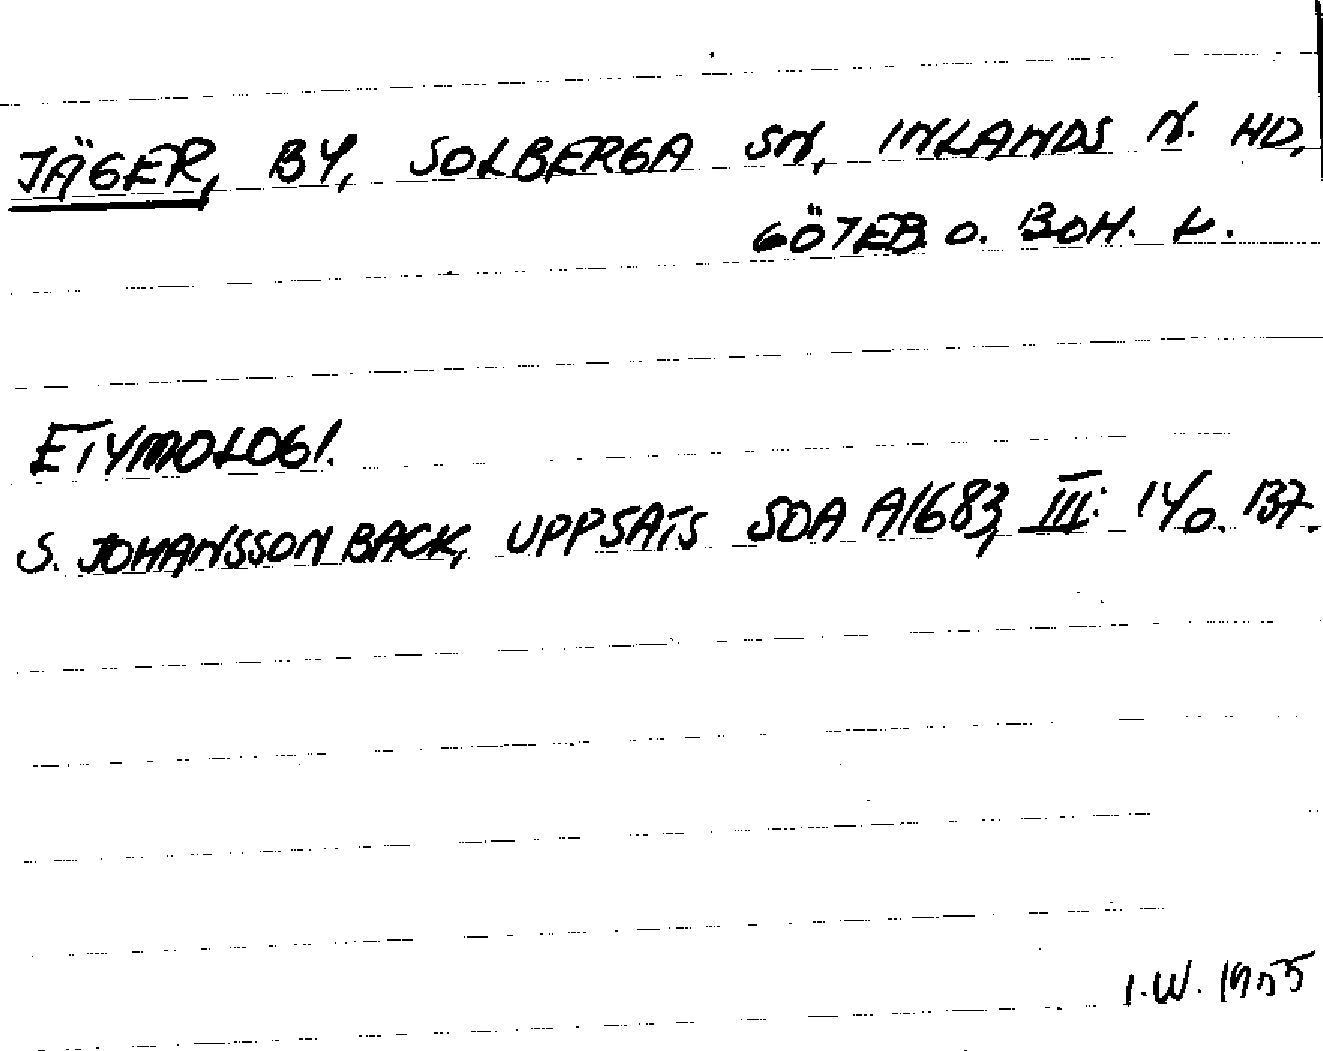 JÄGER, BY, SOLBERGA SN, INLANDS N. HD,
GÖTEB. O. BOH. L.
ETYMOLOGI.
S. JOHANSSON BACK, UPPSATS SOA A1683, III: 14/O. 137.
I.W. 1955